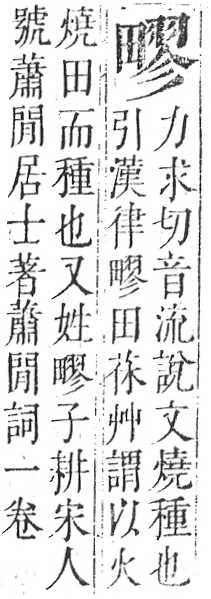 疁
力求切音流說文燒種也
引漢律疁田茠艸謂以火
燒田而種也又姓疁子耕宋人
號蕭閒居士著蕭閒詞一卷